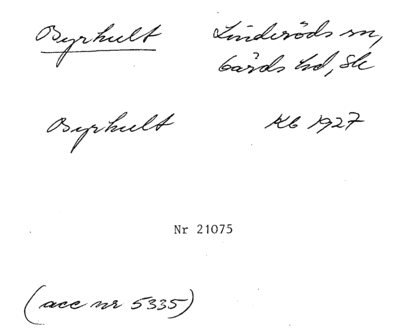 Byrhult Linderöds sn,
Gärds hd, Sk
Byrhult Kb 1927
Nr 21075
(acc nr 5335)